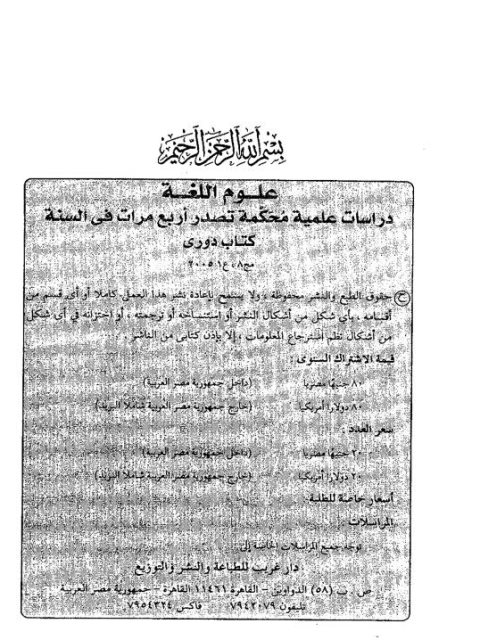 بسم الله الرحمن الرحيم
علوم اللغة
دراسات علمية محكّمة تصدر أربع مرات فى السنة
كتاب دورى
مج٨، ع١، ٢٠٠٥
حقوق الطبع والنشر محفوظة، ولا يسمح بإعادة نشر هذا العمل كاملا أو أى قسم من
أقسامه، بأى شكل من أشكال النشر أو استنساخه أو ترجمته، أو اختزانه فى أى شكل
من أشكال نظم استرجاع المعلومات، إلا بإذن كتابى من الناشر.
قيمة الاشتراك السنوى:
٨٠ جنيهًا مصريا (داخل جمهورية مصر العربية)
٨٠ دولارًا أمريكيا (خارج جمهورية مصر العربية شاملاً البريد)
سعر العدد:
٢٠ جنيهًا مصريا (داخل جمهورية مصر العربية)
٢٠ دولارًا أمريكيا (خارج جمهورية مصر العربية شاملاً البريد)
أسعار خاصة للطلبة
المراسلات
توجه جميع المراسلات الخاصة إلى:
دار غريب للطباعة والنشر والتوزيع
ص. ب (٥٨) الدواوين - القاهرة ١١٤٦١ القاهرة - جمهورية مصر العربية
تليفون ٧٩٤٢٠٧٩ فاكس ٧٩٥٤٣٢٤